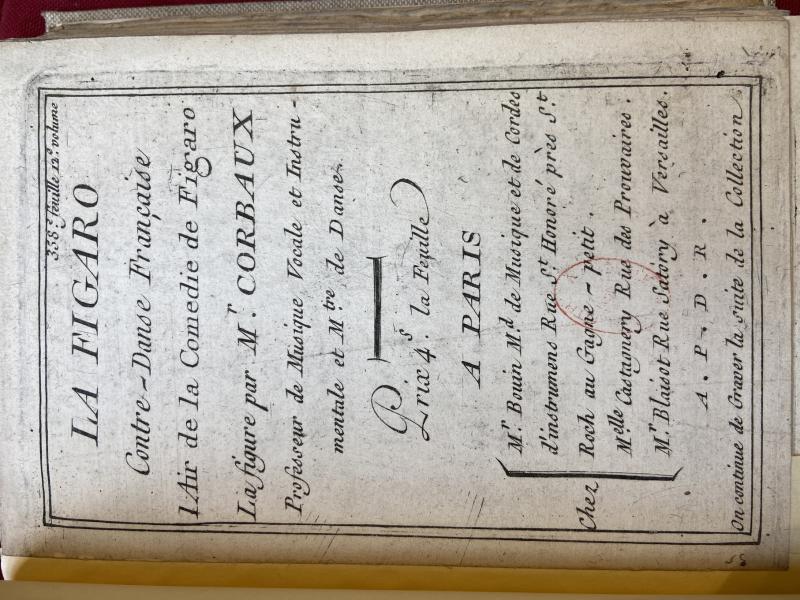 338e. feuille 12e. volume
LA FIGARO
Contre-Danse Française
lAir de la Comedie de Figaro
La figure par Mr. CORBAUX
Professeur de Musique Vocale et Instru-
mentale et Mtre de Danse.
Prix 4s. la Feuille
A PARIS
Chez
Mr. Bouin Md. de Musique et de Cordes
d'instrumens Rue St. Honoré près St.
Roch au Gagne-petit.
Melle Castagnery Rue des Prouvaires.
Mr. Blaisot Rue Satory à Versailles.
A. P. D. R.
On continue de Graver la suite de la Collection.